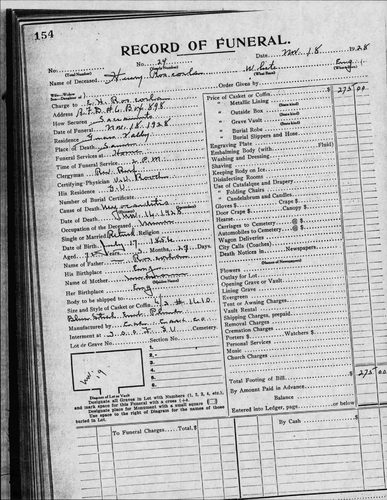 154
RECORD OF FUNERAL.
No. No. 24 Date Nov. 18 1928
(Total Number) (Yearly Number)
Name of Deceased Henry White Eng.
(What Race)
Charge to Order Given by
Address R.F.D. #6 Box 898
How Secured Sacramento
Date of Funeral Nov. 18, 1928
Place of Death Grass Valley
Funeral Services at Home
Time of Funeral Service 2 P.M.
Clergyman Rev.
Certifying Physician
His Residence G.V.
Number of Burial Certificate
Cause of Death Myocarditis
Date of Death Nov. 16, 1928
Occupation of the Deceased Miner
Single or Married Religion
Date of Birth July 17, 1856
Aged Years Months 29 Days
Name of Father
His Birthplace Eng.
Name of Mother
(Maiden Name)
Her Birthplace Eng.
Body to be shipped to
Size and Style of Casket or Coffin
Manufactured by
Interment at I.O.O.F. G.V. Cemetery.
Lot or Grave No.
1.
2.
3.
4.
5.
6.
7.
8.
9.
Diagram of Lot or Vault
Designate all Graves in Lot with Numbers (1, 2, 3, 4, etc.)
and mark space for this Funeral with a cross
Designate place for Monument with a small square
Use space to the right of Diagram for the names of those
buried in Lot.
Price of Casket or Coffin 275 00
" Metallic Lining
(State kind)
" Outside Box
(State kind)
" Grave Vault
(State kind)
" Burial Robe
" Burial Slippers and Hose
Engraving Plate
Embalming Body (with Fluid)
Washing and Dressing
Shaving
Keeping Body on Ice
Disinfecting Rooms
Use of Catafalque and Drapery
" Folding Chairs
" Candelabrum and Candles
Gloves $ Crape $
Door Crape $ Canopy $
Hearse
Carriages to Cemetery @ $
Automobiles to Cemetery @ $
Wagon Deliveries
City Calls (Coaches)
Death Notices in Newspapers
Flowers
Outlay for Lot
Opening Grave or Vault
Lining Grave
Evergreen
Tent or Awning Charges
Vault Rental
Shipping Charges, prepaid
Removal Charges
Cremation Charges
Porters $ Watchers $
Personal Services
Music
Church Charges
Total Footing of Bill 275 00
By Amount Paid in Advance
Balance
Entered into Ledger, page or below
To Funeral Charges By Cash